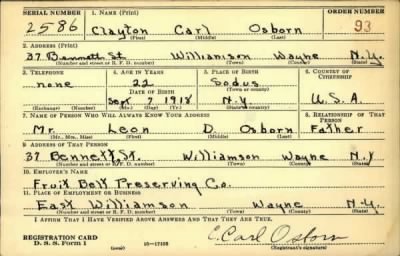 SERIAL NUMBER 1. NAME (Print) ORDER NUMBER
2586 Clayton Carl Osborn 93
(First) (Middle) (Last)
2. ADDRESS (Print)
37 Bennett St. Williamson Wayne N.Y.
(Number and street or R. F. D. number) (Town) (County) (State)
3. TELEPHONE 4. AGE IN YEARS 5. PLACE OF BIRTH 6. COUNTRY OF CITIZENSHIP
none 22 Sodus
DATE OF BIRTH (Town or county)
Sept 7 1918 N.Y. U.S.A.
(Exchange) (Number) (Mo.) (Day) (Yr.) (State or country)
7. NAME OF PERSON WHO WILL ALWAYS KNOW YOUR ADDRESS 8. RELATIONSHIP OF THAT PERSON
Mr. Leon D. Osborn Father
(Mr., Mrs., Miss) (First) (Middle) (Last)
9. ADDRESS OF THAT PERSON
37 Bennett St. Williamson Wayne N.Y
(Number and street or R. F. D. number) (Town) (County) (State)
10. EMPLOYER'S NAME
Fruit Belt Preserving Co.
11. PLACE OF EMPLOYMENT OR BUSINESS
East Williamson Wayne N.Y.
(Number and street or R. F. D. number) (Town) (County) (State)
I AFFIRM THAT I HAVE VERIFIED ABOVE ANSWERS AND THAT THEY ARE TRUE.
REGISTRATION CARD C. Carl Osborn
D. S. S. Form 1 (Registrant's signature)